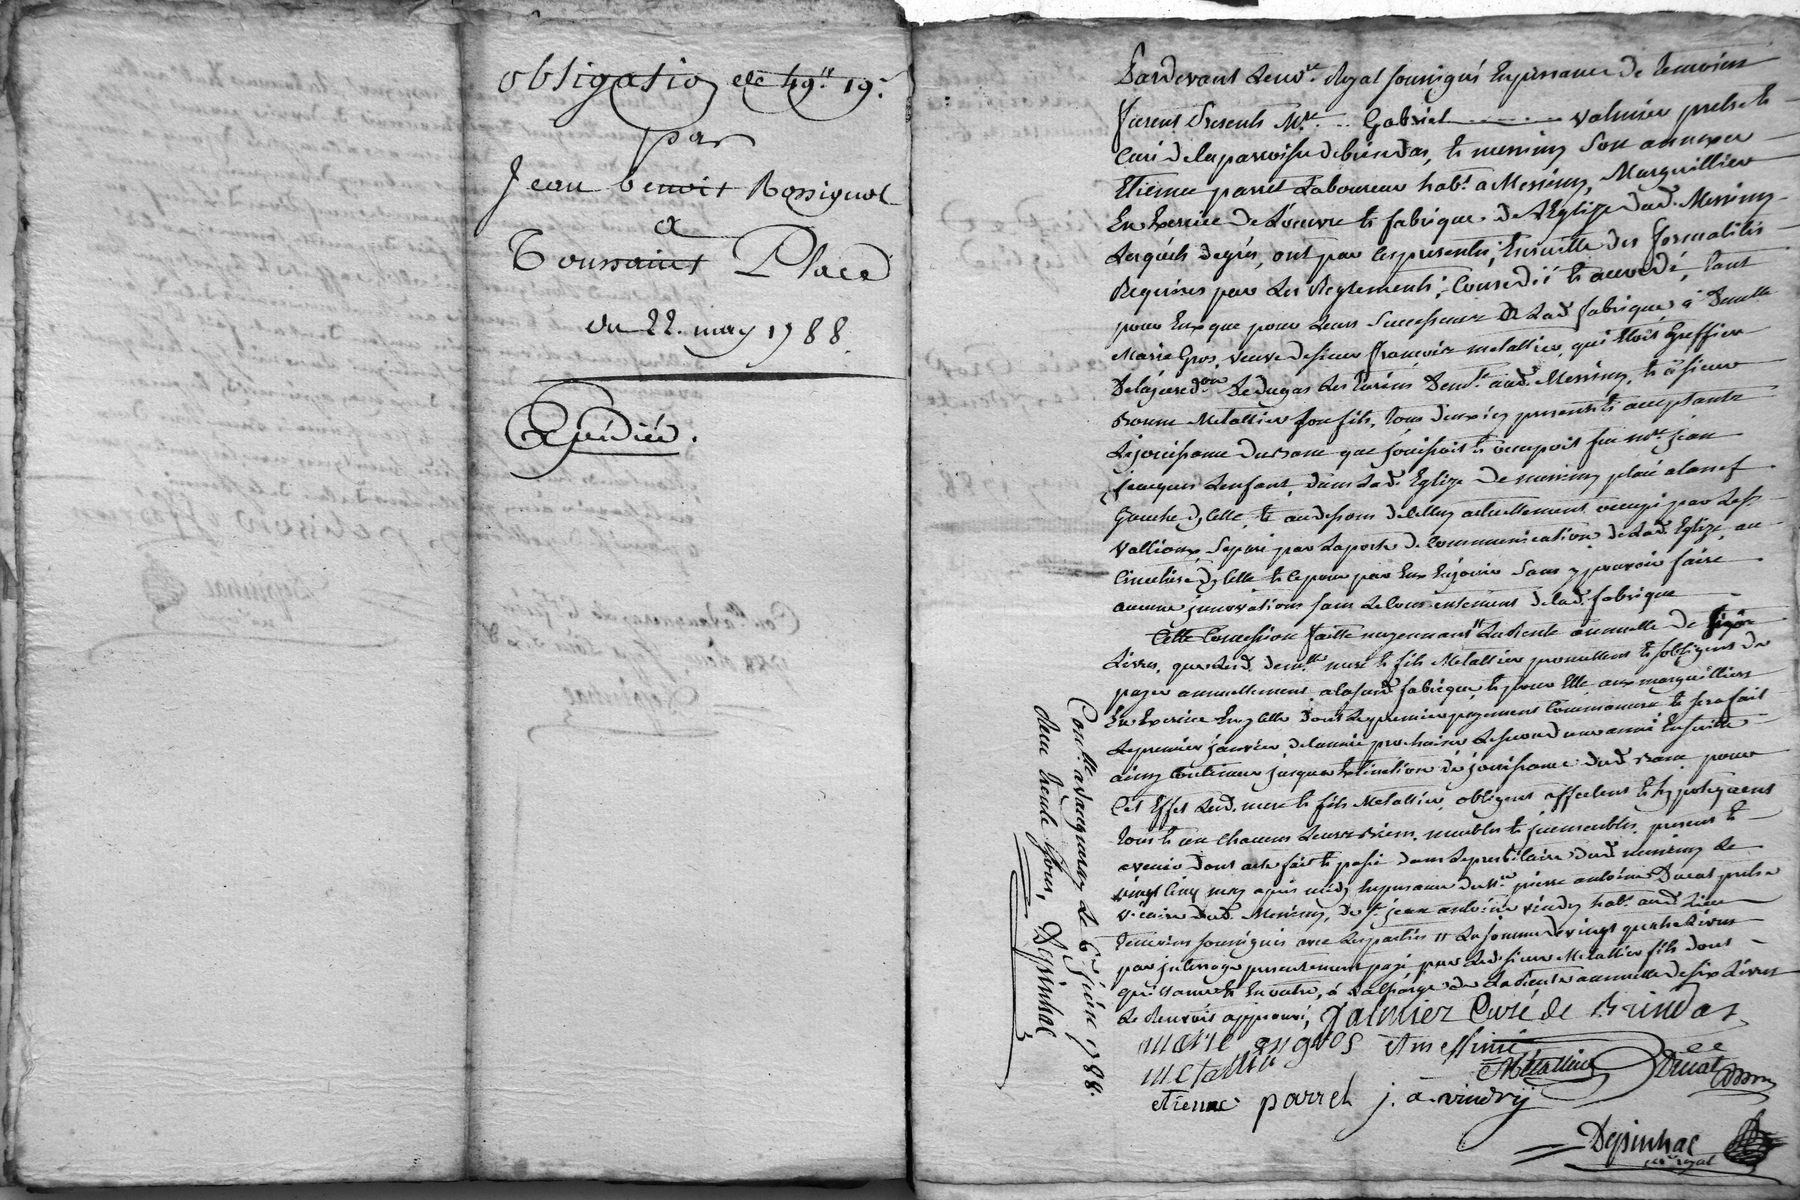 obligation de 49ᵗᵗ 19ˢ
par
Jean benoit Rossignol
a
Toussaint Place
du 22. may 1788.
Expédiée.
Pardevant le nore. Royal soussigné en presence de temoins
furent presents Mre. Gabriel valmier prêtre
Curé de la parroisse de brindas, et messimy son annexe
Etienne parret Laboureur habt. a Messimy, Marguillier
En Exercice de l'oeuvre et fabrique de l'Eglise dud. Messimy
Lesquels de gré, ont par les presentes, Ensuitte des formalités
Requises par les Reglements, Concedé et accordé, tant
pour Eux que pour Leurs Successeurs de lad. fabrique à Demelle
Marie Gros, veuve de sieur françois metallier, qui Etoit greffier
de la jurid.on de dugas des tureins Demte. aud. Messimy, et à sieur
Metallier son fils, tous deux icy presents et acceptants
La jouissance du banc que jouissoit et occupoit feu mre. jean
jacques Lenfant, dans lad. Eglise de messimy placé a la nef
Gauche d'jcelle, et au dessous de celluy actuellement occupé par les srs.
Vallioux, Separé par la porte de communication de lad. Eglise, au
Cimetière d'jcelle et ce pour par Eux En jouir sans y pouvoir faire
aucune jnnovations sans le Consentement de lad. fabrique
Cette Concession faitte moyennant la Rente annuelle de
Livres, que lesd. demlle. mere et fils Metallier promettent et s'obligent de
payer annuellement a la susd. fabrique, et pour Elle aux marguilliers
En Exercice En jcelle dont le premier payement Commencera et sera fait
le premier janvier de l'année prochaine le second une année Ensuitte
ainsy continuer jusques Extinction de jouissance dud. Banc, pour
Cet Effet Lesd. mere et fils Metallier obligent affectent et hypotequent
tous et un chacuns Leurs Biens meubles et jmmeubles, presents et
avenir dont acte fait et passé dans le presbitaire dud. messimy le
vingt cinq may après midy En presence de Mre. pierre antoine Ducat prêtre
Vicaire dud. Messimy, de sr. jean antoine vindry habt. aud. Lieu
temoins soussignés avec les parties ₶ La somme de vingt quatre Livres
par presentement payé par led. sieur Metallier fils dont
quittance et En outre, à la charge de la Rente annuelle de six Livres
Le Renvois approuvé, Valmier Curé de Brindas
marie gros et messimi
metallier Metallier Ducat
etienne parret j. a. vindry
Depinhac
nore. royal
Conlle. a Vaugneray le 6e juin 1788.
Reçu trente sous, Depinhac